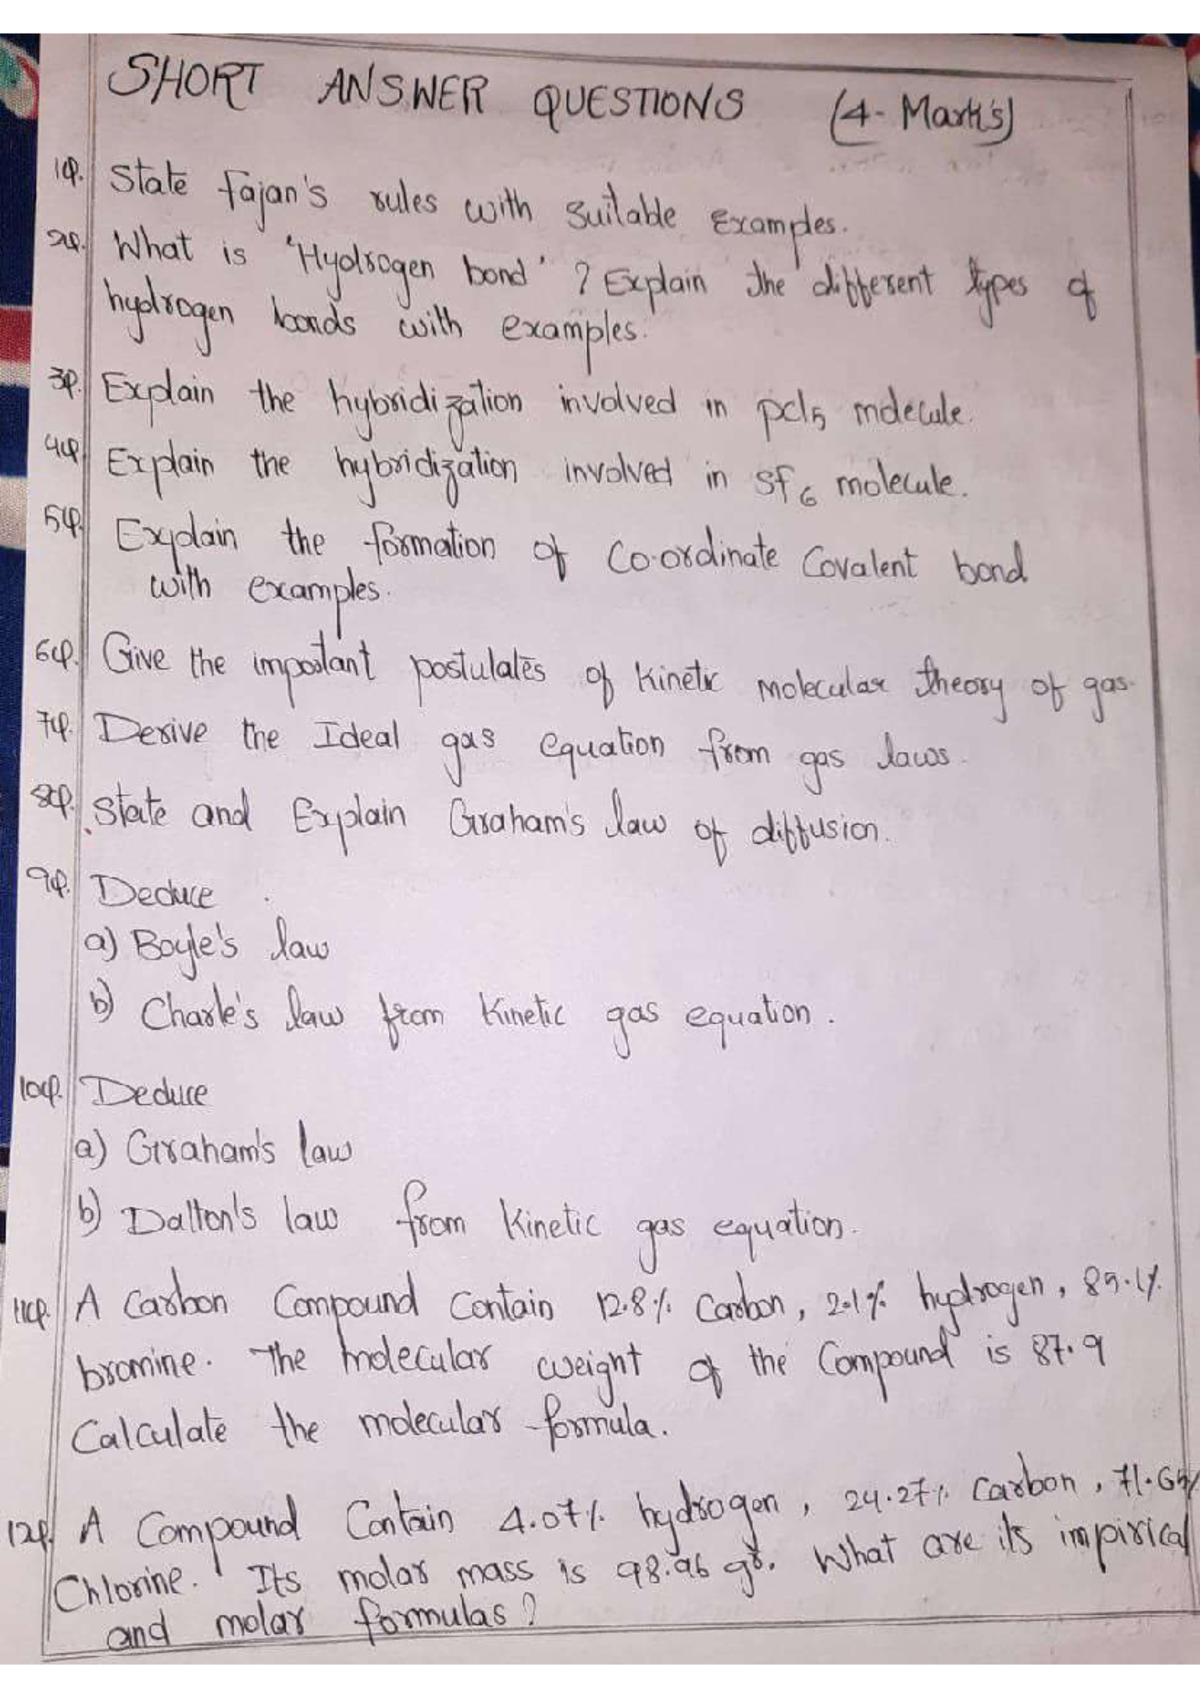 SHORT ANSWER QUESTIONS (4- Mark's)
1Q. State Fajan's rules with suitable Examples.
2Q. What is 'Hydrogen bond' ? Explain the different types of
hydrogen bonds with examples.
3Q. Explain the hybridization involved in pcl5 molecule.
4Q. Explain the hybridization involved in SF6 molecule.
5Q. Explain the formation of Co-ordinate Covalent bond
with examples.
6Q. Give the important postulates of Kinetic molecular theory of gas.
7Q. Derive the Ideal gas equation from gas laws.
8Q. State and Explain Graham's law of diffusion.
9Q. Deduce
a) Boyle's law
b) Charle's law from Kinetic gas equation.
10Q. Deduce
a) Graham's law
b) Dalton's law from Kinetic gas equation.
11Q. A Carbon Compound Contain 12.8% Carbon, 2.1% hydrogen, 85.1%
bromine. The molecular weight of the Compound is 87.9
Calculate the molecular formula.
12Q. A Compound Contain 4.07% hydrogen, 24.27% Carbon, 71.65%
Chlorine. Its molar mass is 98.96 gr. What are its impirical
and molar formulas?